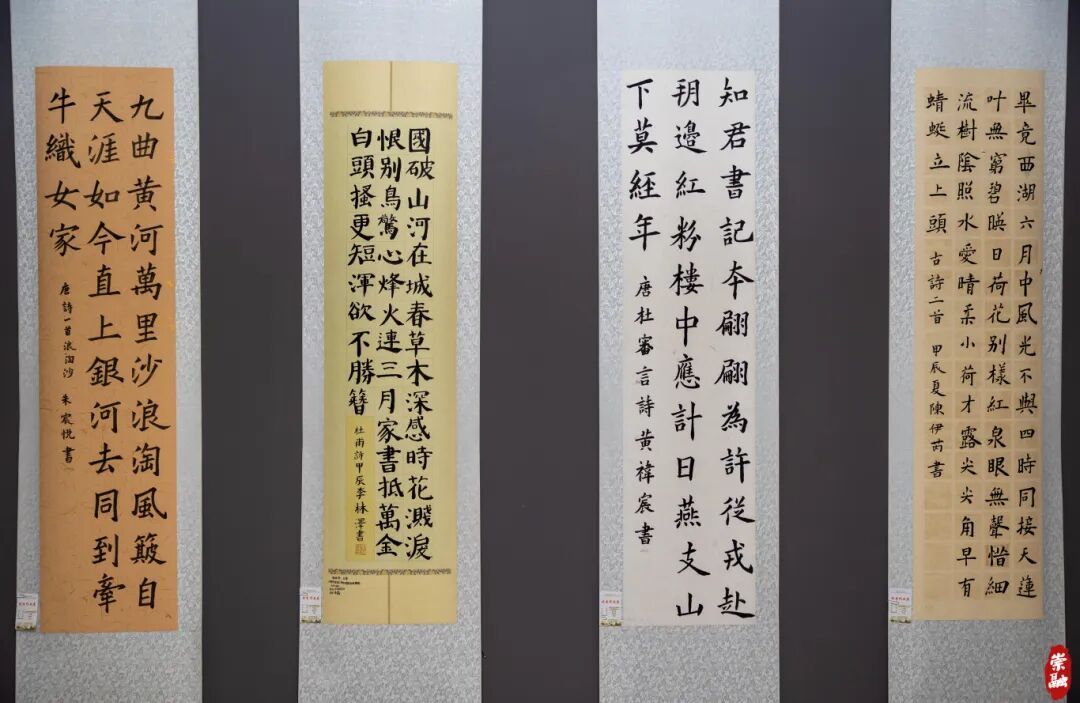 九曲黄河萬里沙浪淘風簸自
天涯如今直上銀河去同到牽
牛織女家
唐詩一首浪淘沙 朱宸悦書
國破山河在城春草木深感時花濺淚
恨別鳥驚心烽火連三月家書抵萬金
白頭搔更短渾欲不勝簪
杜甫詩甲辰李林書
知君書記本翩翩為許従戎赴
朔邊紅粉樓中應計日燕支山
下莫經年
唐杜審言詩黄禕宸書
畢竟西湖六月中風光不與四時同接天蓮
叶無窮碧暎日荷花別樣紅泉眼無聲惜細
流樹陰照水愛晴柔小荷才露尖尖角早有
蜻蜓立上頭 古詩二首 甲辰夏陳伊芮書
崇融